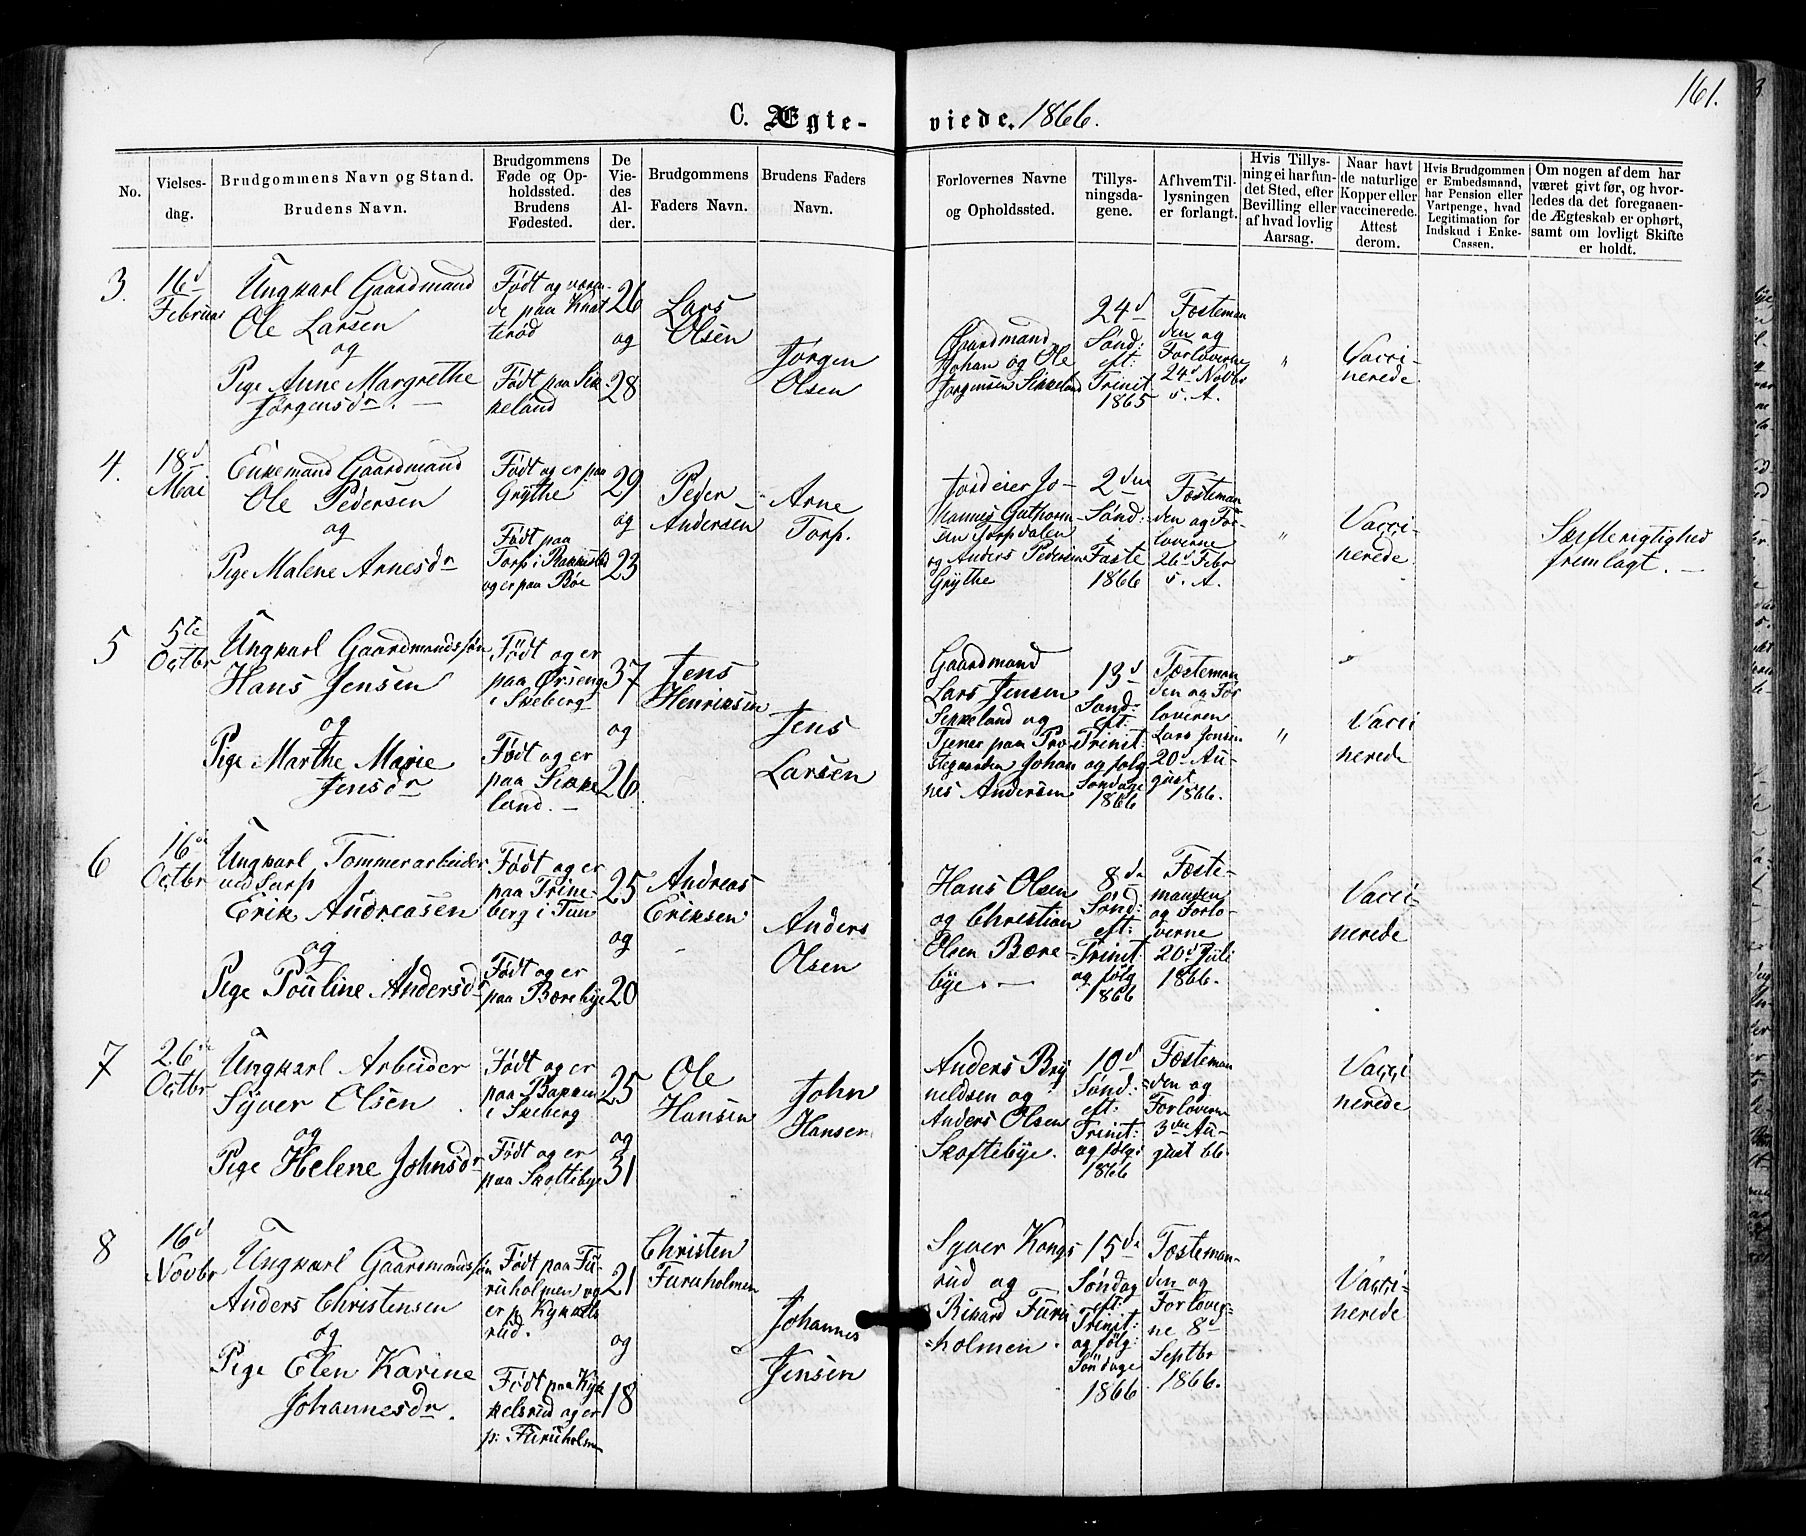 161.
C. Ægte-viede. 1866.
No.
Vielses-
dag.
Brudgommens Navn og Stand.
Brudens Navn.
Brudgommens
Føde og Op-
holdssted.
Brudens
Fødested.
De
Vie-
des
Al-
der.
Brudgommens
Faders Navn.
Brudens Faders
Navn.
Forlovernes Navne
og Opholdssted.
Tillys-
ningsda-
gene.
Af hvem Til-
lysningen
er forlangt.
Hvis Tillys-
ning ei har fun-
det Sted, efter
Bevilling eller
af hvad lovlig
Aarsag.
Naar havt
de naturlige
Kopper eller
vaccinerede.
Attest
derom.
Hvis Brudgommen
er Embedsmand,
har Pension eller
Vartpenge, hvad
Legitimation for
Indskud i Enke-
Cassen.
Om nogen af dem har
været givt før, og hvor-
ledes da det foregaaen-
de Ægteskab er ophørt,
samt om lovligt Skifte
er holdt.
3.
16d
Februar
Ungkarl Gaardmand
Ole Larsen
og
Pige Anne Margrethe
Jørgensdr.
Født og væren-
de paa Knat
terød
Født paa Sik-
keland
26
og
28
Lars
Olsen
Jørgen
Olsen
Gaardmand
Johan og Ole
Jørgensen Sikkeland
24d
Sønd:
eft:
Trinit
1865
Fæsteman
den og
Forloverne
24d Novbr
s. A.
"
Vacci-
nerede
4.
18d
Mai
Enkemand Gaardmand
Ole Pedersen
og
Pige Malene Arnesdr
Født og er paa
Grythe
Født paa
Torp i Rakkestad
og er paa Bøe
29
og
23
Peder
Andersen
Arne
Torp.
Jordeier Jo-
hannes Guthorm-
sen Torpdalen
og Anders Pedersen
Grythe
2den
Sønd:
i
Faste
1866
Fæsteman
den og For-
loverne
26d Febr
s. A.
"
Vacci-
nerede.
Skifterigtighed
fremlagt.
5
5te
Octbr
Ungkarl Gaardmandssøn
Hans Jensen
og
Pige Marthe Marie
Jensdr
Født og er
paa Ørseng
i Skeberg
Født og er
paa Sikke
land.
37
og
26
Jens
Henriksen
Jens
Larsen
Gaardmand
Lars Jensen
Sikkeland og
Tjener paa Præ-
stegaarden Johan
nes Andersen
13d
Sønd:
eft:
Trinit:
og følg
Søndage
1866
Fæsteman
den og For
loveren
Lars Jensen
20d Au-
gust
1866.
"
Vacci
nerede
6
16de
Octbr
Ungkarl Tømmerarbeider
ved Sarp
Erik Andreasen
og
Pige Pouline Andersdr
Født og er
paa Trine-
berg i Tun
Født og er
paa Bærebye
25
og
20
Andreas
Eriksen
Anders
Olsen
Hans Olsen
og Christian
Olsen Bære-
bye.
8de
Sønd:
eft:
Trinit
og følg
1866
Fæste-
manden
og Forlo-
verne
20d Juli
1866.
Vacci-
nerede
7
26de
Octbr
Ungkarl Arbeider
Syver Olsen
og
Pige Helene Johnsdr
Født og er
paa Bakken
i Skeberg
Født og er
paa Skoftebye
25
og
31
Ole
Hansen
John
Hansen
Anders Bry
nildsen og
Anders Olsen
Skoftebye.
10d
Sønd:
eft:
Trinit:
og følg:
1866
Fæsteman
den og
Forloverne
3die Au-
gust 66.
Vacci
nerede
8
16d
Novbr
Ungkarl Gaardmandssøn
Anders Christensen
og
Pige Elen Karine
Johannesdr.
Født paa Fu-
ruholmen og
er p. Kykkels
rud.
Født paa Kyk
kelsrud og er
p: Furuholm
21
og
18
Christen
Furuholmen
Johannes
Jensen
Syver Kongs
rud og
Rikard Furu
holmen.
15de
Søndag
eft:
Trinit:
og følg:
Søndage
1866
Fæsteman-
den og
Forlover-
ne 8d
Septbr
1866.
"
Vacci-
nerede